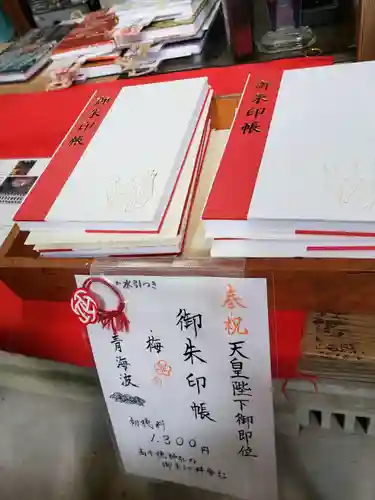 御朱印帳
御朱印帳
奉祝
天皇陛下御即位
御朱印帳
梅
青海波
初穂料
1.300円